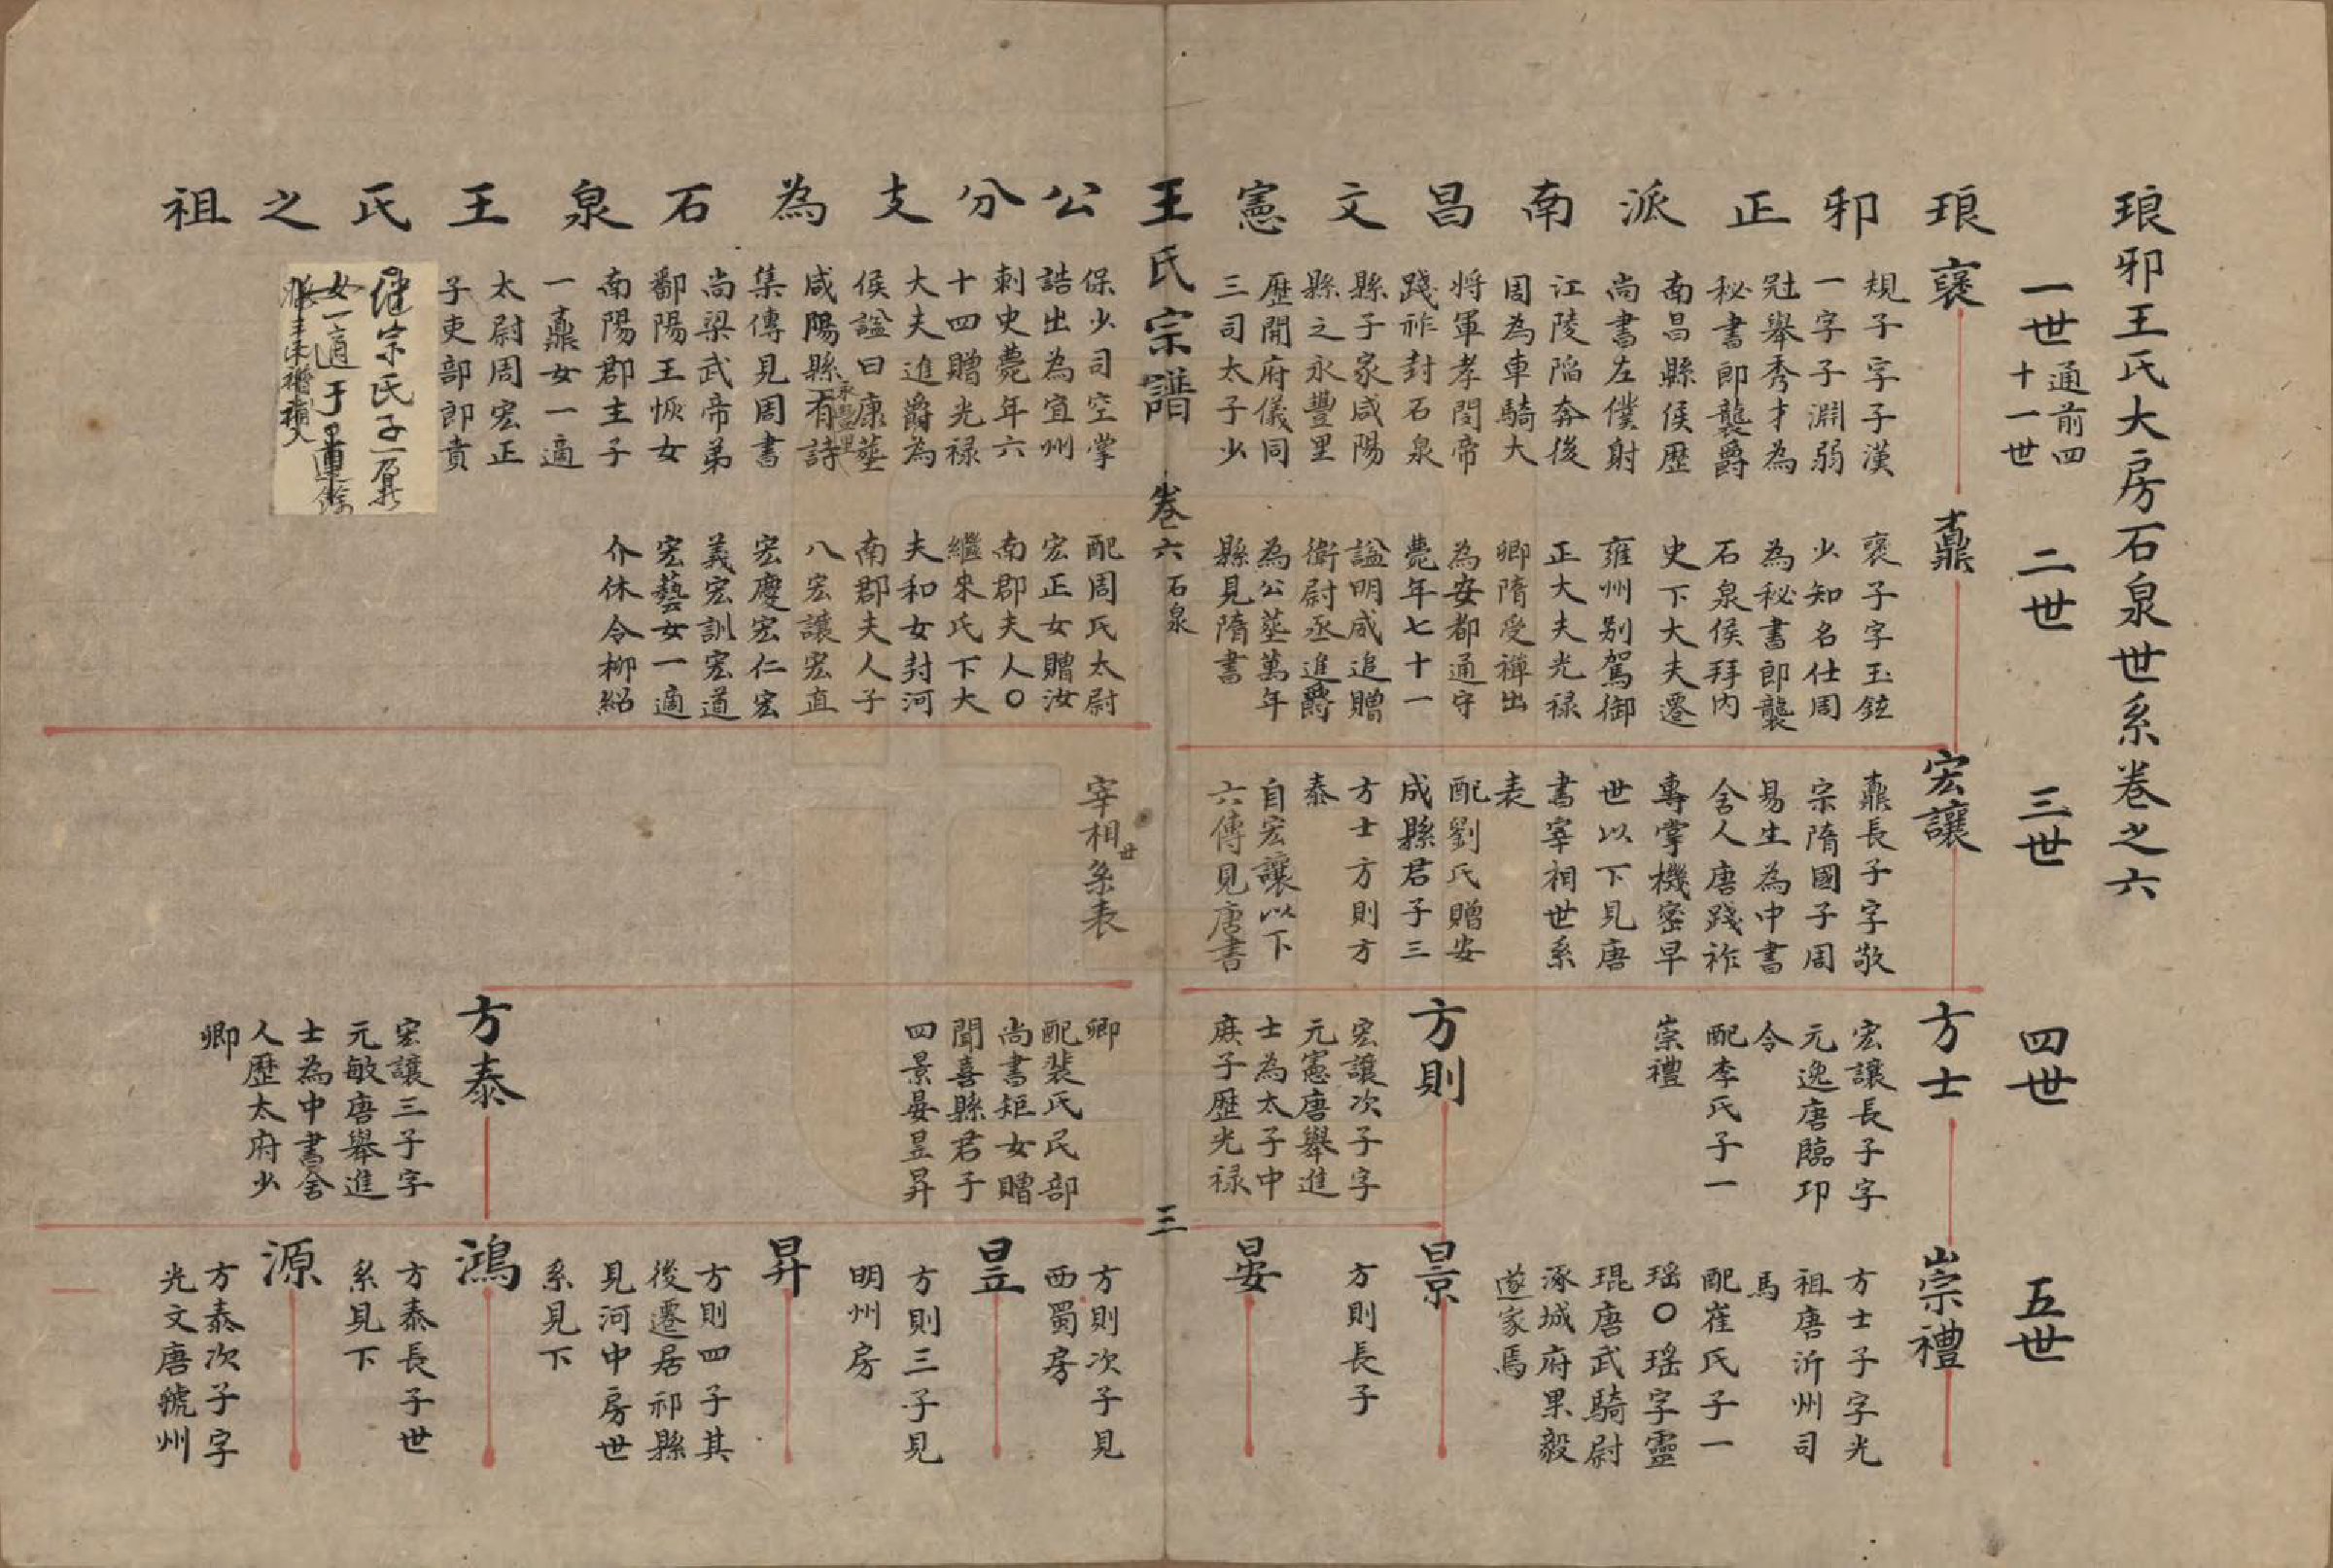 琅邪王氏大房石泉世系卷之六
一世
通前四
十一世
二世
三世
四世
五世
琅邪正派南昌文憲
王氏宗譜
卷六
石泉
三
公分支為石泉王氏之祖
褒
規子字子漢
一字子淵弱
冠舉秀才為
秘書郎襲爵
南昌縣侯歷
尚書左僕射
江陵陷奔後
周為車騎大
將軍孝閔帝
踐祚封石泉
縣子家咸陽
縣之永豐里
歷開府儀同
三司太子少
保少司空掌
誥出為宜州
刺史薨年六
十四贈光禄
大夫進爵為
侯諡曰康葬
咸陽縣有詩
集傳見周書
尚梁武帝弟
鄱陽王恢女
南陽郡主子
一鼒女一適
太尉周宏正
子吏部郎賁
繼宗氏子一鼐
鼒
褒子字玉鉉
少知名仕周
為秘書郎襲
石泉侯拜内
史下大夫遷
雍州别駕御
正大夫光禄
卿隋受禪出
為安都通守
薨年七十一
諡明咸追贈
衛尉丞進爵
為公葬萬年
縣見隋書
配周氏太尉
宏正女贈汝
南郡夫人〇
繼來氏下大
夫和女封河
南郡夫人子
八宏讓宏直
宏慶宏仁宏
義宏訓宏道
宏藝女一適
介休令柳紹
宏讓
鼒長子字敬
宗隋國子周
易生為中書
舍人唐踐祚
專掌機密早
世以下見唐
書宰相世系
表
配劉氏贈安
成縣君子三
方士方則方
泰
自宏讓以下
六傳見唐書
宰相世系表
方士
宏讓長子字
元逸唐臨邛
令
配李氏子一
崇禮
方則
宏讓次子字
元憲唐舉進
士為太子中
庶子歷光禄
卿
配裴氏民部
尚書矩女贈
聞喜縣君子
四景晏昱昇
方泰
宏讓三子字
元敏唐舉進
士為中書舍
人歷太府少
卿
崇禮
方士子字光
祖唐沂州司
馬
配崔氏子一
瑶〇瑶字靈
琨唐武騎尉
涿城府果毅
遂家焉
景
方則長子
晏
方則次子見
西蜀房
昱
方則三子見
明州房
昇
方則四子其
後遷居祁縣
見河中房世
系見下
鴻
方泰長子世
系見下
源
方泰次子字
光文唐虢州